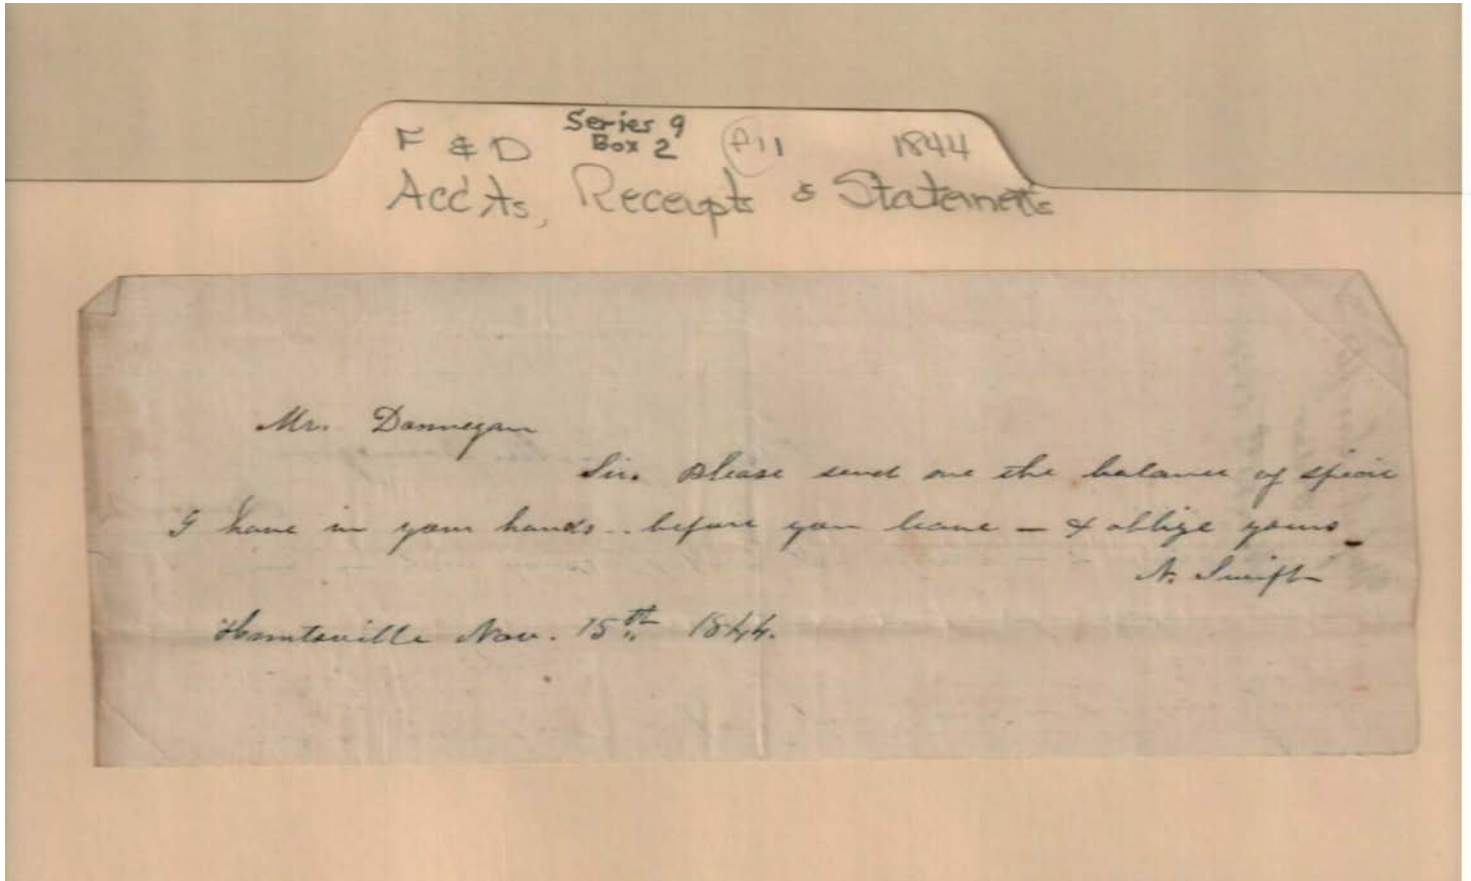 Series 9
F & D Box 2 A11 1844
Acc'ts, Receipts & Statements
Mr. Donnegan
Sir. Please send me the balance of specie
I have in your hands .. before you leave — & oblige yours
N. Swift
Huntsville Nov. 15th 1844.